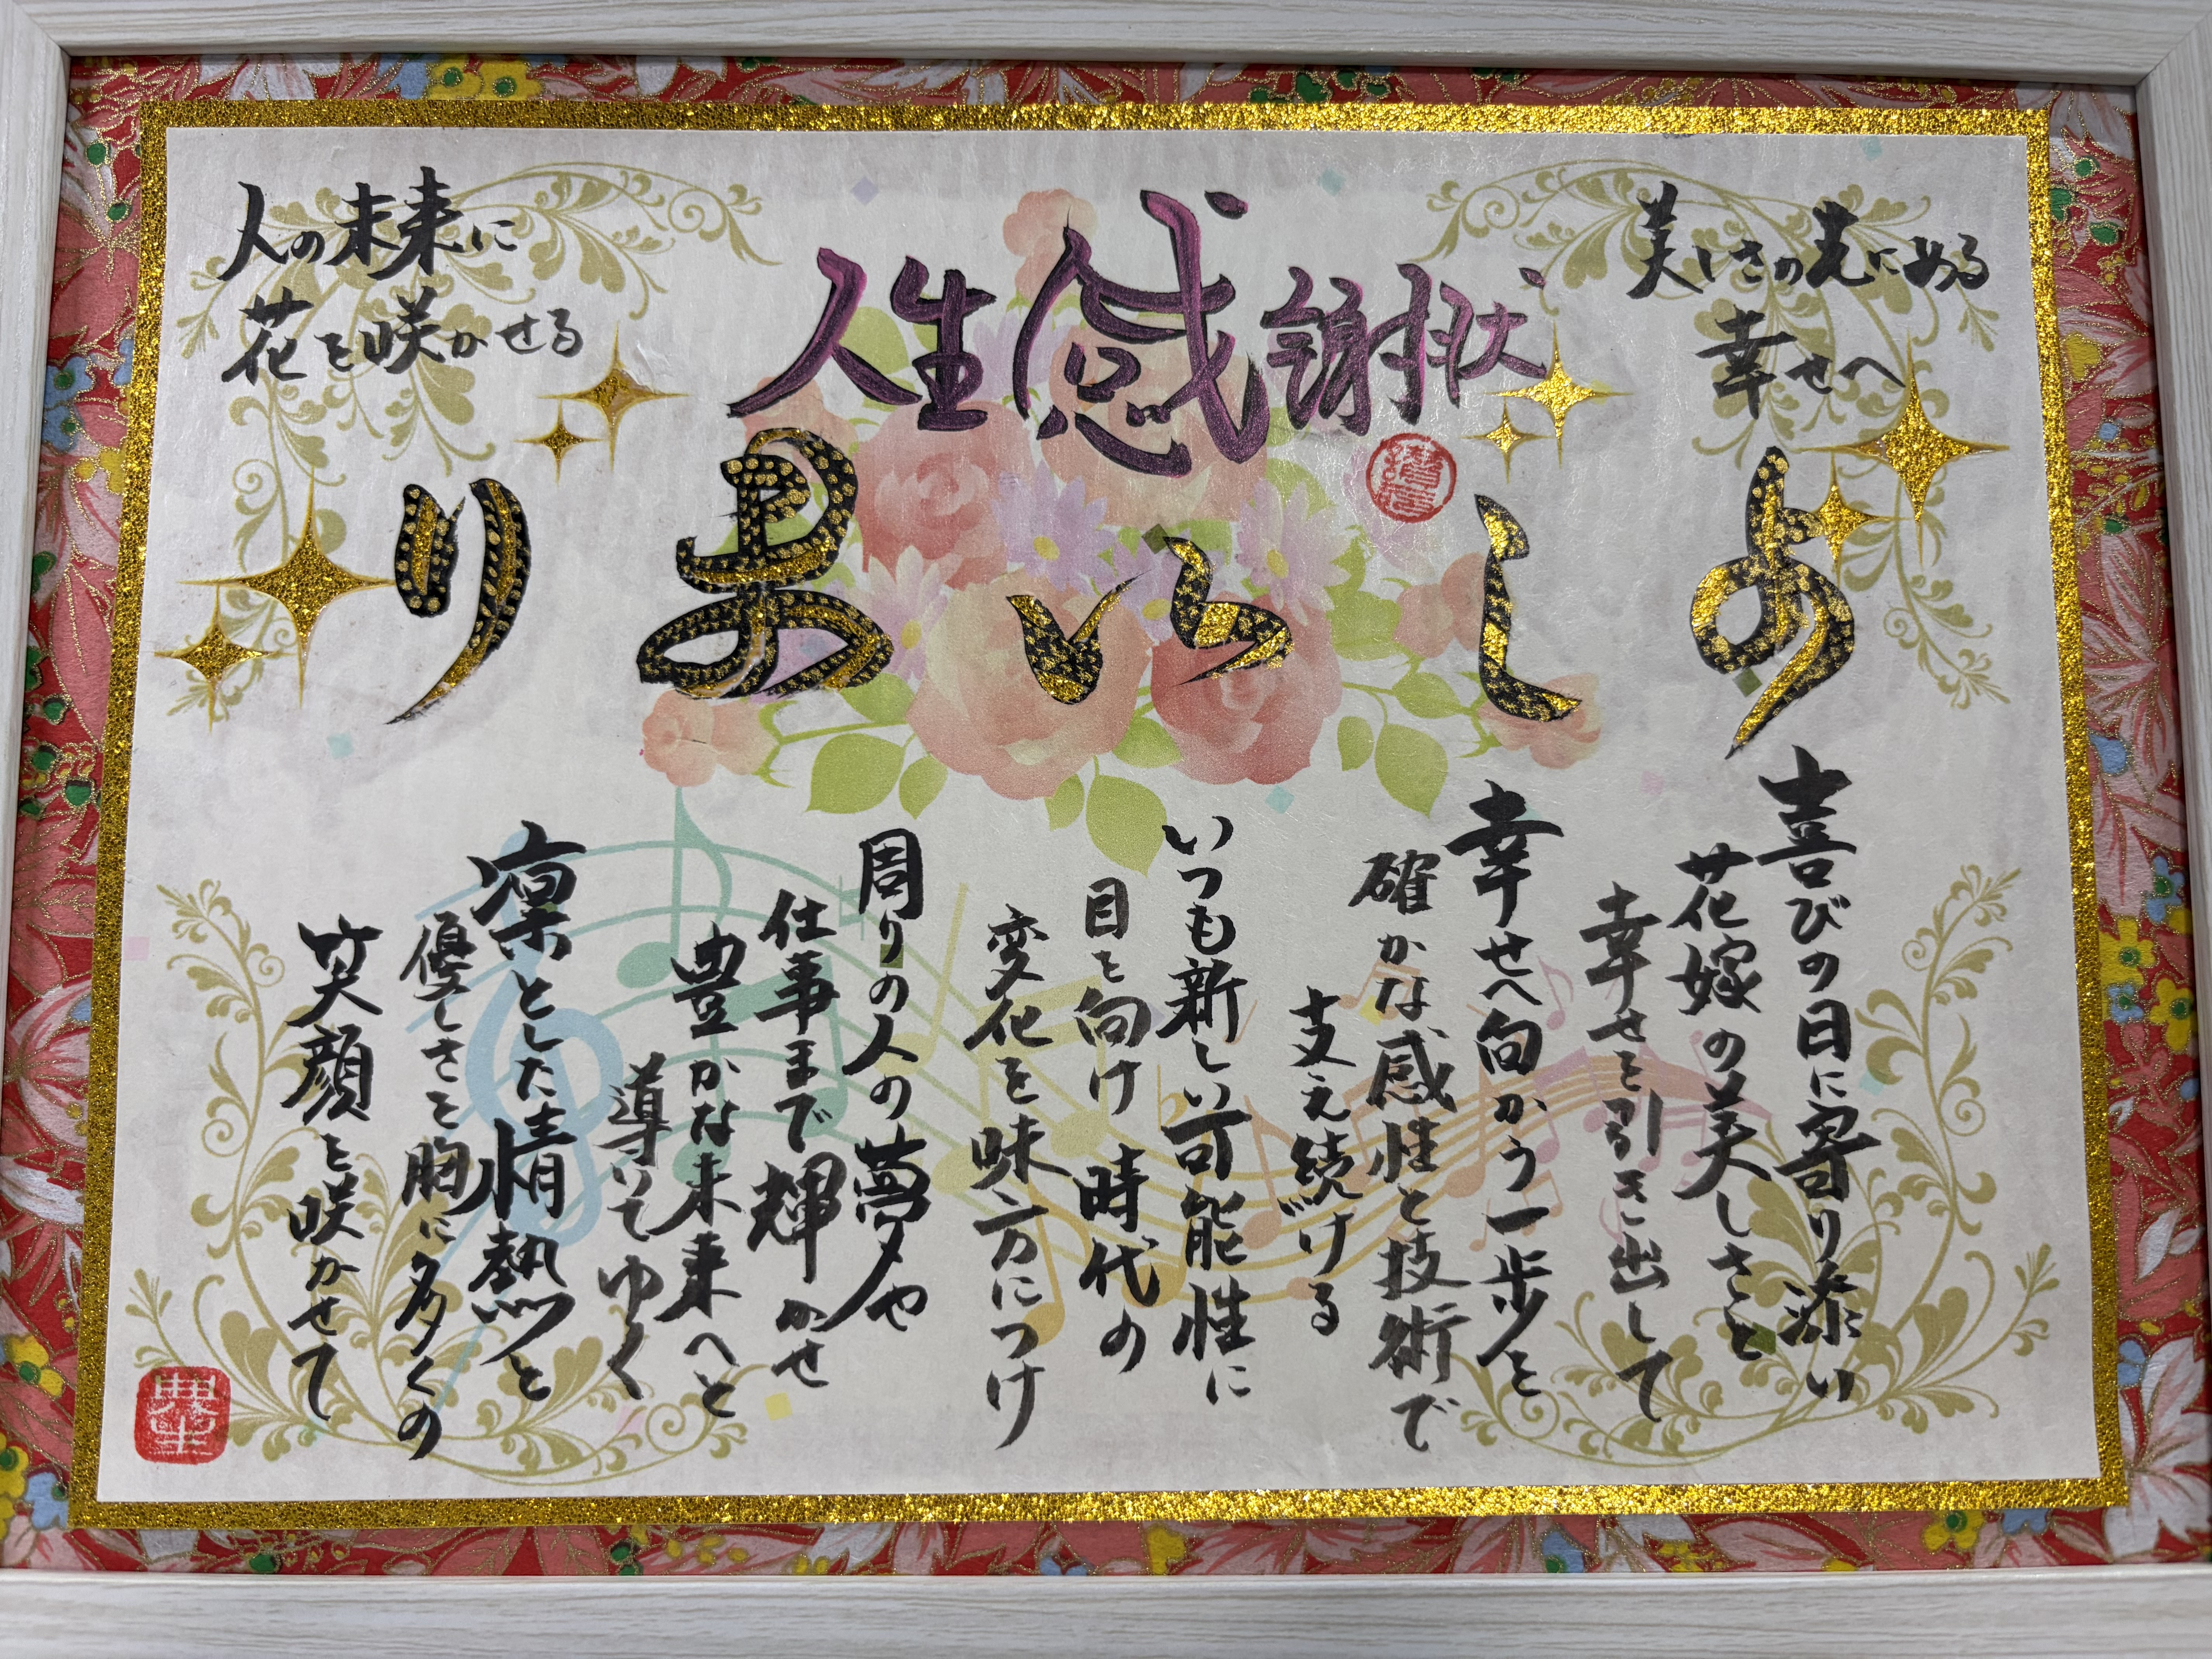 人生感謝状
美しさの先にある
幸せへ
人の未来に
花を咲かせる
よしいまり
喜びの日に寄り添い
花嫁の美しさと
幸せを引き出して
幸せへ向かう一歩を
確かな感性と技術で
支え続ける
いつも新しい可能性に
目を向け時代の
変化を味方につけ
周りの人の夢や
仕事まで輝かせ
豊かな未来へと
導いてゆく
凛とした情熱と
優しさを胸に多くの
笑顔を咲かせて